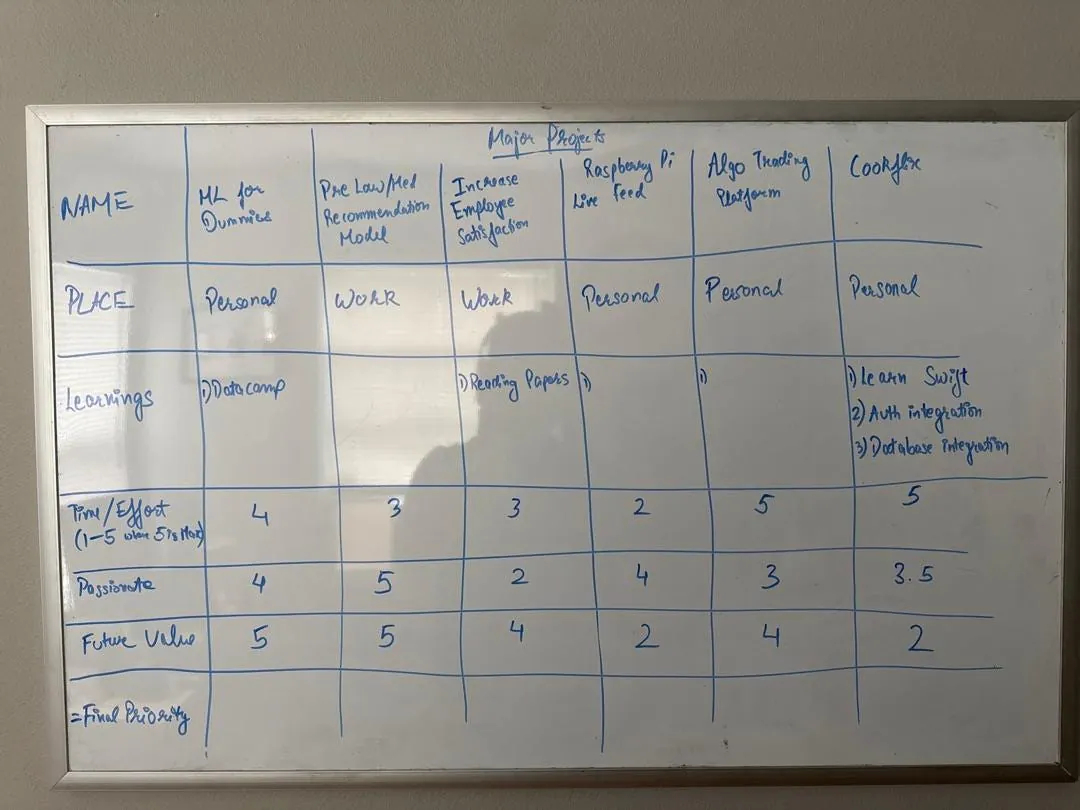 Major Projects
NAME
ML for
Dummies
Pre Low/Med
Recommendation
Model
Increase
Employee
Satisfaction
Raspberry Pi
Live Feed
Algo Trading
Platform
Cookflix
PLACE
Personal
WORK
Work
Personal
Personal
Personal
Learnings
1) Datacamp
1) Reading Papers
1)
1)
1) Learn Swift
2) Auth integration
3) Database integration
Time/Effort
(1-5 where 5 is Max)
4
3
3
2
5
5
Passionate
4
5
2
4
3
3.5
Future Value
5
5
4
2
4
2
=Final Priority